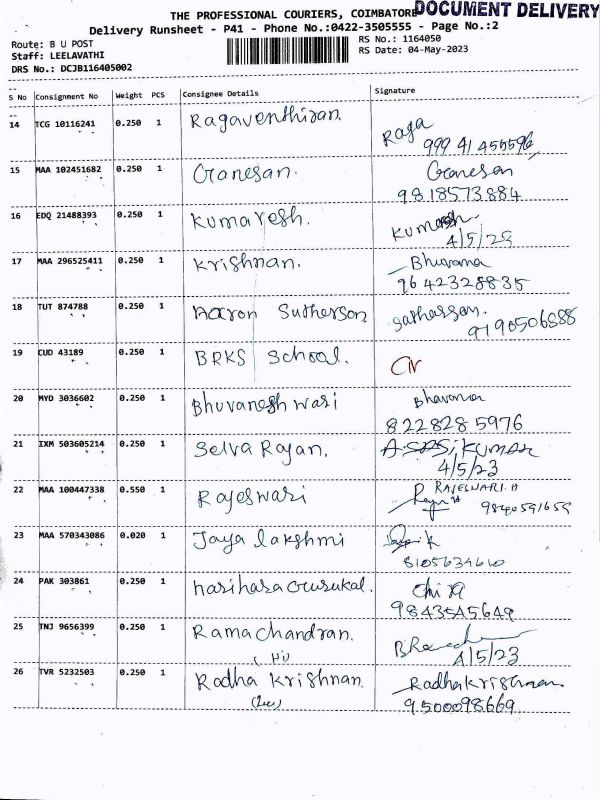 THE PROFESSIONAL COURIERS, COIMBATORE DOCUMENT DELIVERY
Delivery Runsheet - P41 - Phone No.:0422-3505555 - Page No.:2
Route: B U POST RS No.: 1164050
Staff: LEELAVATHI RS Date: 04-May-2023
DRS No.: DCJB116405002
S No Consignment No Weight PCS Consignee Details Signature
14 TCG 10116241 0.250 1 Ragaventhiran Raga
999 41 455596
15 MAA 102451682 0.250 1 Ganesan. Ganesan
9818573884
16 EDQ 21488393 0.250 1 Kumaresh.
4/5/23
17 MAA 296525411 0.250 1 Krishnan. Bhuvana
9642328835
18 TUT 874788 0.250 1 Aaron Sutherson
9190506888
19 CUD 43189 0.250 1 BRKS School.
20 MYD 3036602 0.250 1 Bhuvaneshwari Bhavana
822828 5976
21 IXM 503605214 0.250 1 Selva Rajan.
4/5/23
22 MAA 100447338 0.550 1 Rajeswari RAJESWARI.A
9840591659
23 MAA 570343086 0.020 1 Jaya lakshmi
8105634610
24 PAK 303861 0.250 1 hariharaGurukal.
9843545649
25 TNJ 9656399 0.250 1 Ramachandran.
4/5/23
26 TVR 5232503 0.250 1 Radha Krishnan. Radhakrishnan.
9500098669